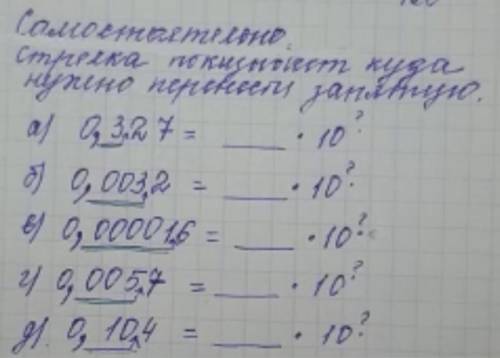 Самостоятельно.
стрелка показывает куда
нужно перенести запятую.
а) 0,3,27 = ___ · 10?
б) 0,003,2 = ___ · 10?
в) 0,00001,6 = ___ · 10?
г) 0,005,7 = ___ · 10?
д) 0,10,4 = ___ · 10?